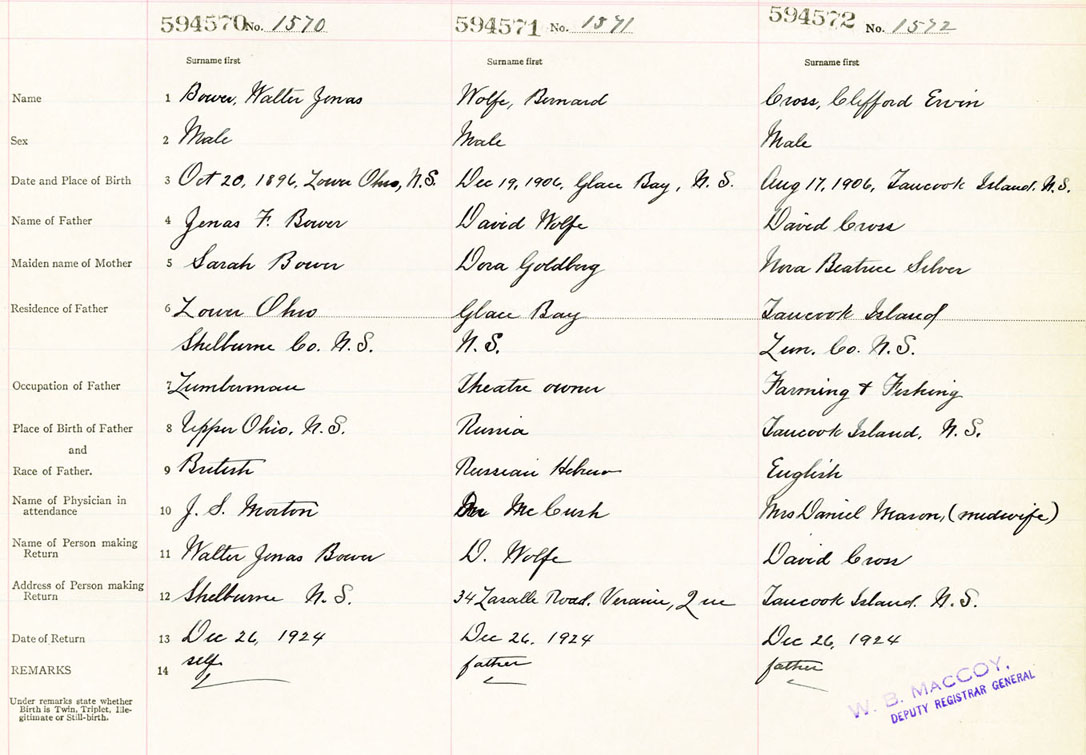 594570 No. 1570 594571 No. 1571 594572 No. 1572
Surname first Surname first Surname first
Name 1 Bower, Walter Jonas Wolfe, Bernard Cross, Clifford Ervin
Sex 2 Male Male Male
Date and Place of Birth 3 Oct 20, 1896, Lower Ohio, N.S. Dec 19, 1906, Glace Bay, N.S. Aug 17, 1906, Tancook Island, N.S.
Name of Father 4 Jonas F. Bower David Wolfe David Cross
Maiden name of Mother 5 Sarah Bower Dora Goldberg Nora Beatrice Silver
Residence of Father 6 Lower Ohio Glace Bay Tancook Island
Shelburne Co. N.S. N.S. Lun. Co. N.S.
Occupation of Father 7 Lumberman Theatre owner Farming & Fishing
Place of Birth of Father 8 Upper Ohio, N.S. Russia Tancook Island, N.S.
and
Race of Father. 9 British Russian Hebrew English
Name of Physician in
attendance 10 J. S. Morton McCush Mrs Daniel Mason, (midwife)
Name of Person making
Return 11 Walter Jonas Bower D. Wolfe David Cross
Address of Person making
Return 12 Shelburne N.S. 34 Lasalle Road, Que Tancook Island. N.S.
Date of Return 13 Dec 26, 1924 Dec 26, 1924 Dec 26, 1924
REMARKS 14 self father father
Under remarks state whether
Birth is Twin, Triplet, Ille-
gitimate or Still-birth.
W. B. MACCOY,
DEPUTY REGISTRAR GENERAL